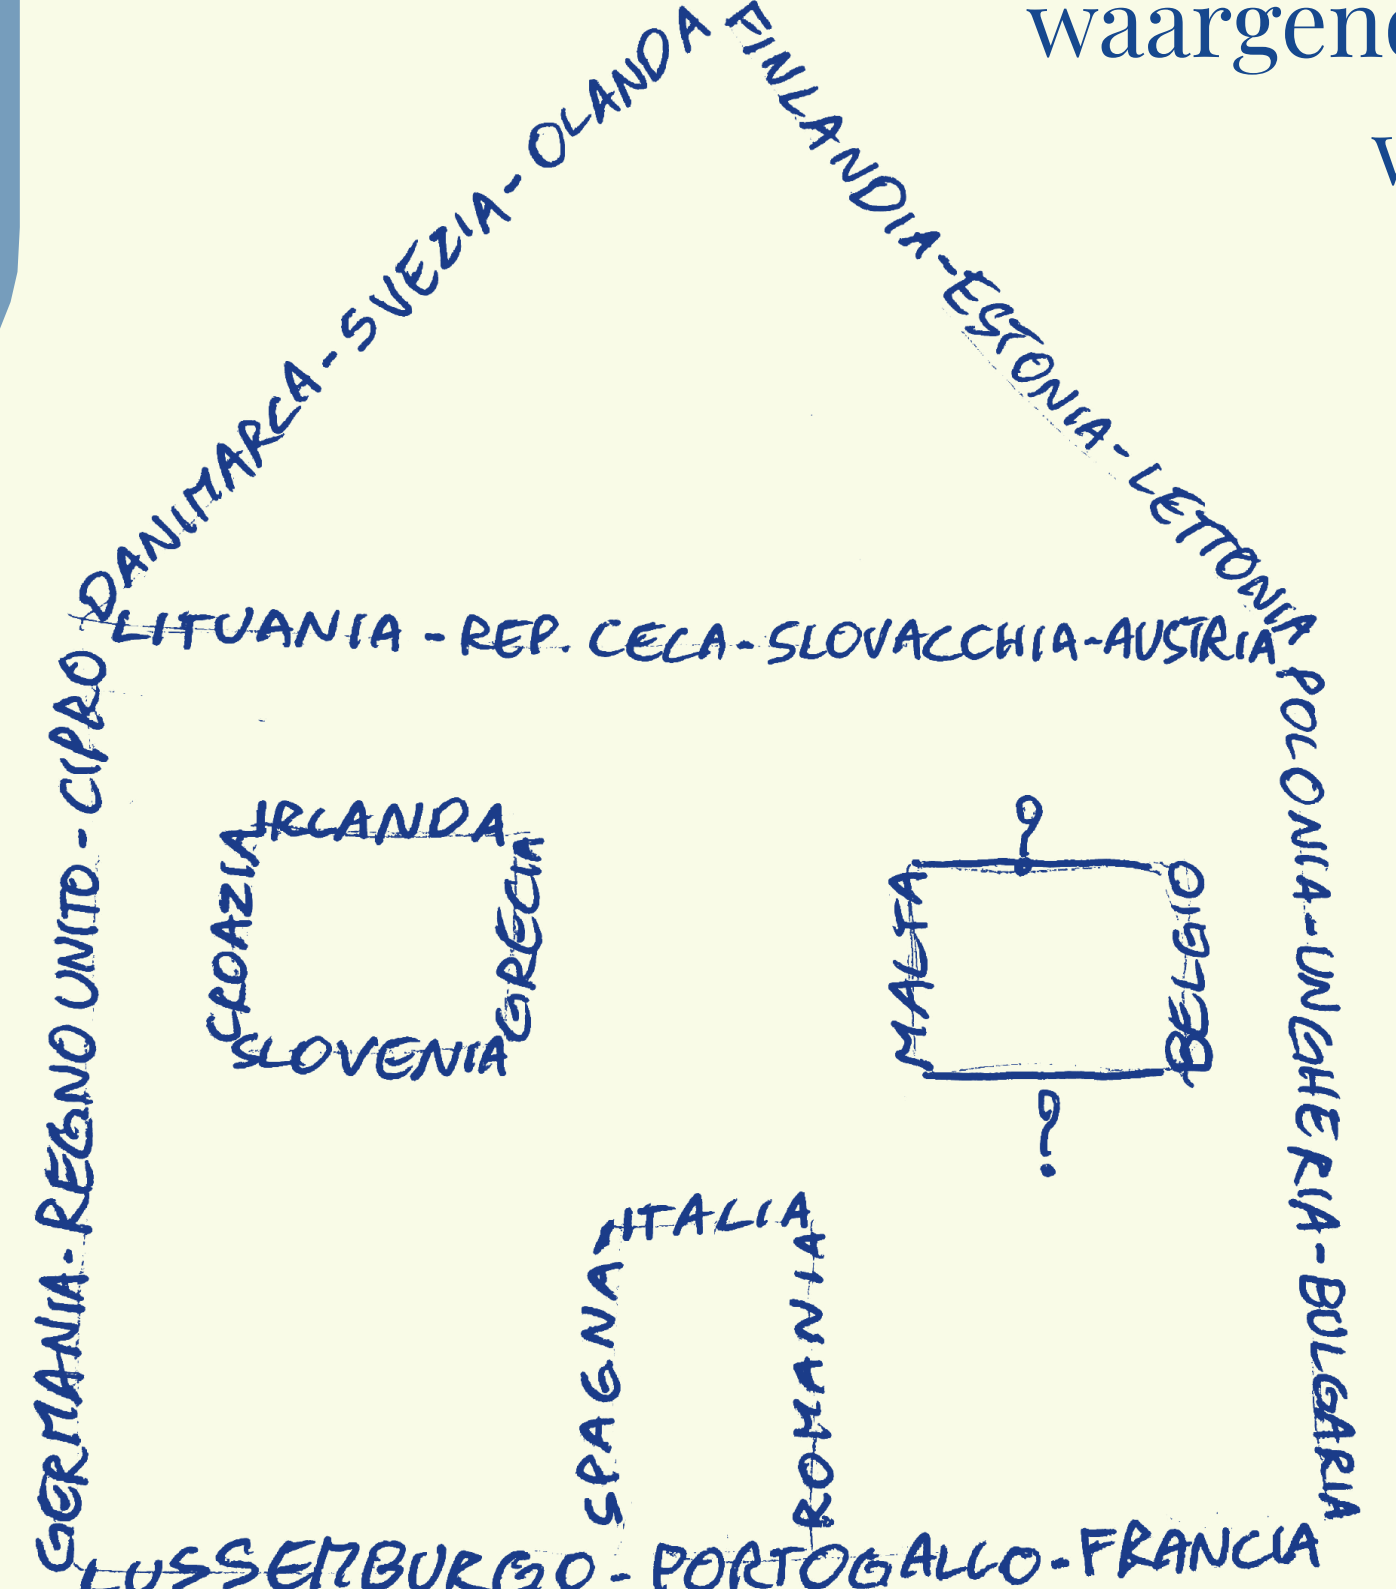 waargen
DANIMARCA - SVEZIA - OLANDA
FINLANDIA - ESTONIA - LETTONIA
LITUANIA - REP. CECA - SLOVACCHIA - AUSTRIA
GERMANIA - REGNO UNITO - CIPRO
POLONIA - UNGHERIA - BULGARIA
IRLANDA
CROAZIA
GRECIA
SLOVENIA
?
MALTA
BELGIO
?
ITALIA
SPAGNA
ROMANIA
LUSSEMBURGO - PORTOGALLO - FRANCIA